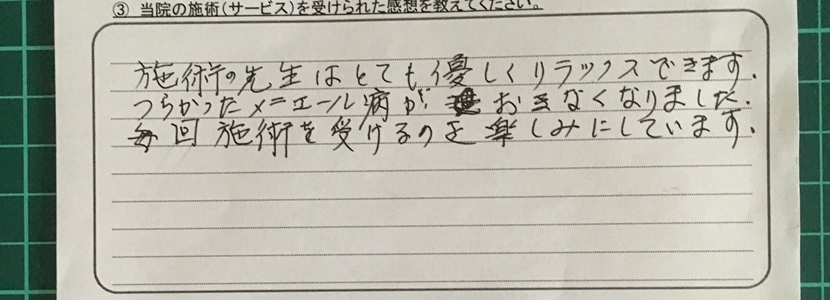 ③ 当院の施術(サービス)を受けられた感想を教えてください。
施術の先生はとても優しくリラックスできます.
つらかったメニエール病が おきなくなりました.
毎回施術を受けるのを楽しみにしています.